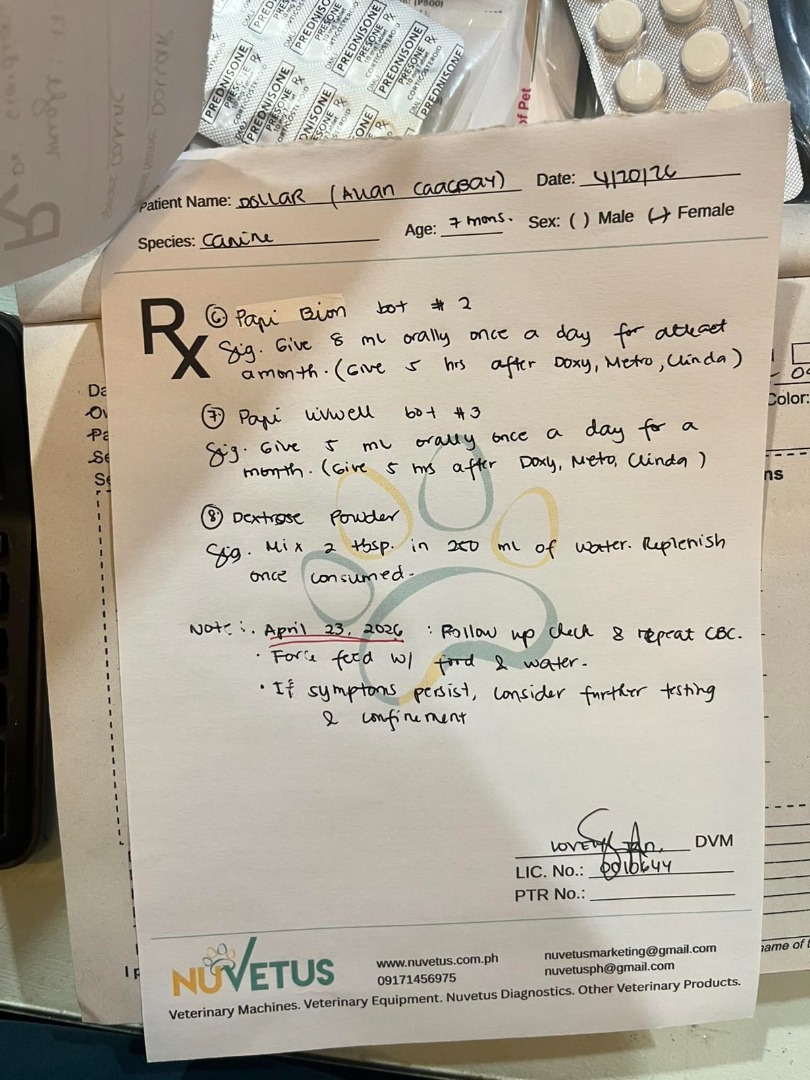 (P500)
PREDNISONE
PRESONE Rx
10 mg Tablet
CORTICOSTEROID
of Pet
Patient Name: DOLLAR (Allan Caacbay) Date: 4/20/26
Species: Canine Age: 7 mons. Sex: ( ) Male (✓) Female
Rx
⑥ Papi Bion bot # 2
Sig. Give 8 ml orally once a day for atleast
a month. (Give 5 hrs after Doxy, Metro, Clinda)
⑦ Papi Livwell bot #3
Sig. Give 5 ml orally once a day for a
month. (Give 5 hrs after Doxy, Metro, Clinda)
⑧ Dextrose Powder
Sig. Mix 2 tbsp. in 250 ml of water. Replenish
once consumed.
Note: . April 23, 2026 : Follow up check & repeat CBC.
· Force feed w/ food & water.
· If symptoms persist, consider further testing
& confinement
DVM
LIC. No.: 0010644
PTR No.:
NUVETUS
www.nuvetus.com.ph
09171456975
nuvetusmarketing@gmail.com
nuvetusph@gmail.com
Veterinary Machines. Veterinary Equipment. Nuvetus Diagnostics. Other Veterinary Products.
Color: